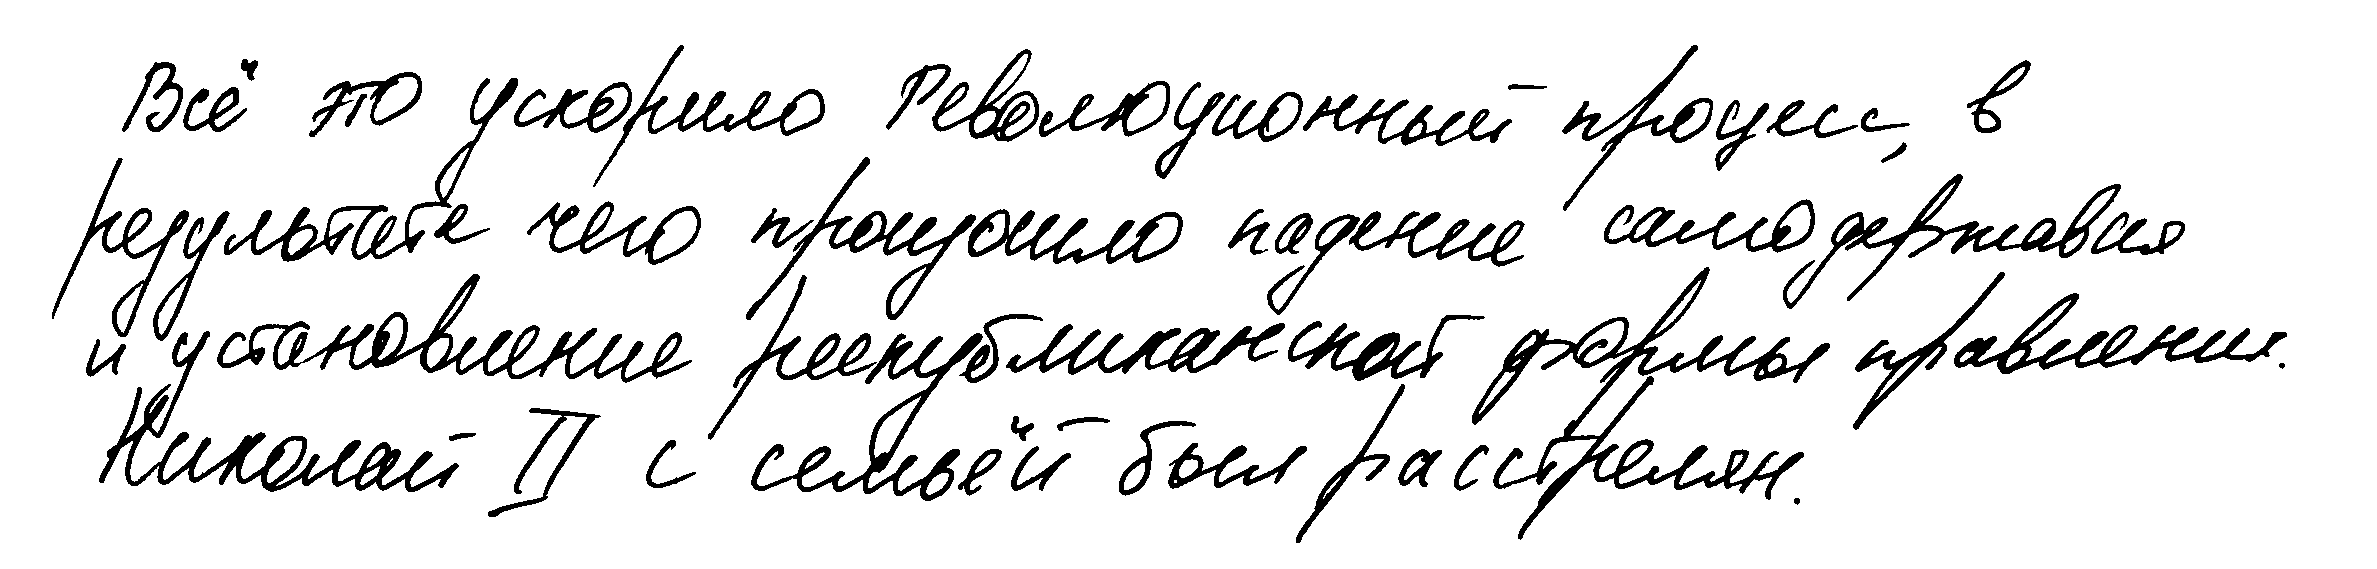 Всё это ускорило Революционный процесс, в
результате чего произошло падение самодержавия
и установление республиканской формы правления.
Николай II с семьёй был расстрелян.